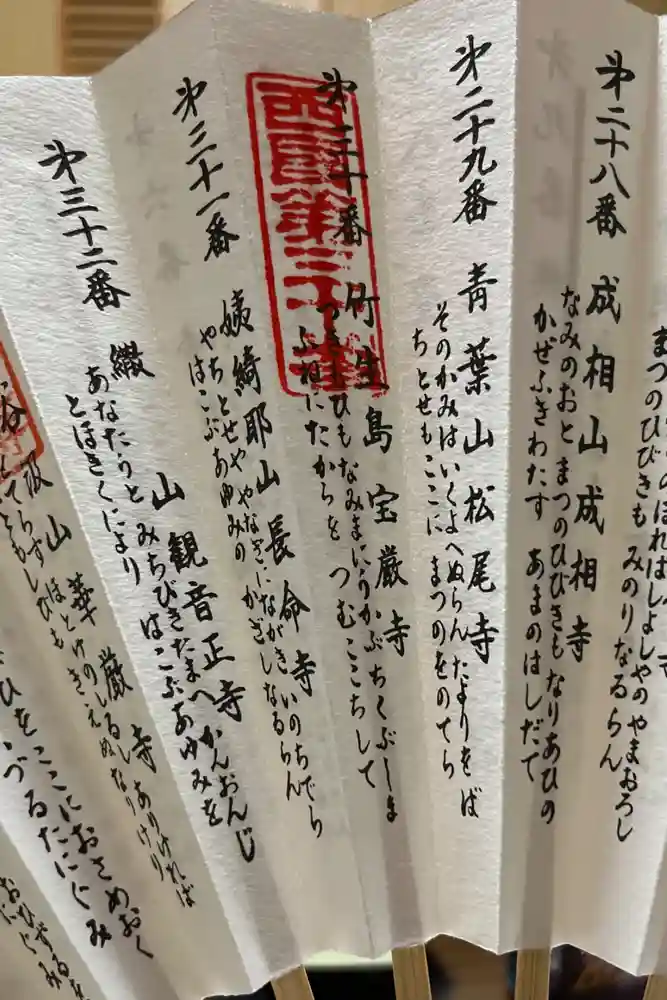 まつのひびきも みのりなるらん
のぼればしよしやのやまおろし
第二十八番 成相山成相寺
なみのおと まつのひびきもなりあひの
かぜふきわたす あまのはしだて
第二十九番 青葉山松尾寺
そのかみはいくよへぬらん たよりをば
ちとせもここに まつのをのてら
第三十番 竹生島宝厳寺
ひもなみまにうかぶちくぶしま
ふねにたからを つむここちして
西国第三十番
第三十一番 姨綺耶山長命寺
やちとせや やなぎにながきいのちでら
はこぶあゆみの かざしなるらん
第三十二番 繖山観音正寺
あなたうと みちびきたまへ かんおんじ
とほきくにより はこぶあゆみを
谷汲山華厳寺
てらす ほとけのしるしありければ
ともしびも きえぬなりけり
ひをここにおさめおく
づるたにぐみ